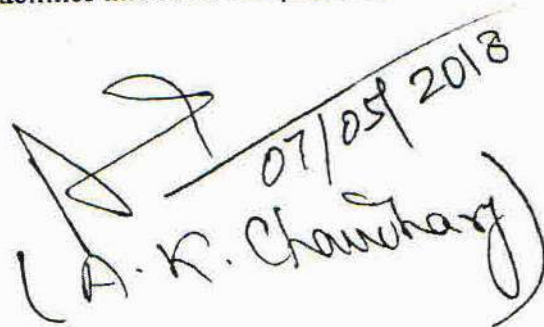 07/05/2018
(A. K. Chaudhary)